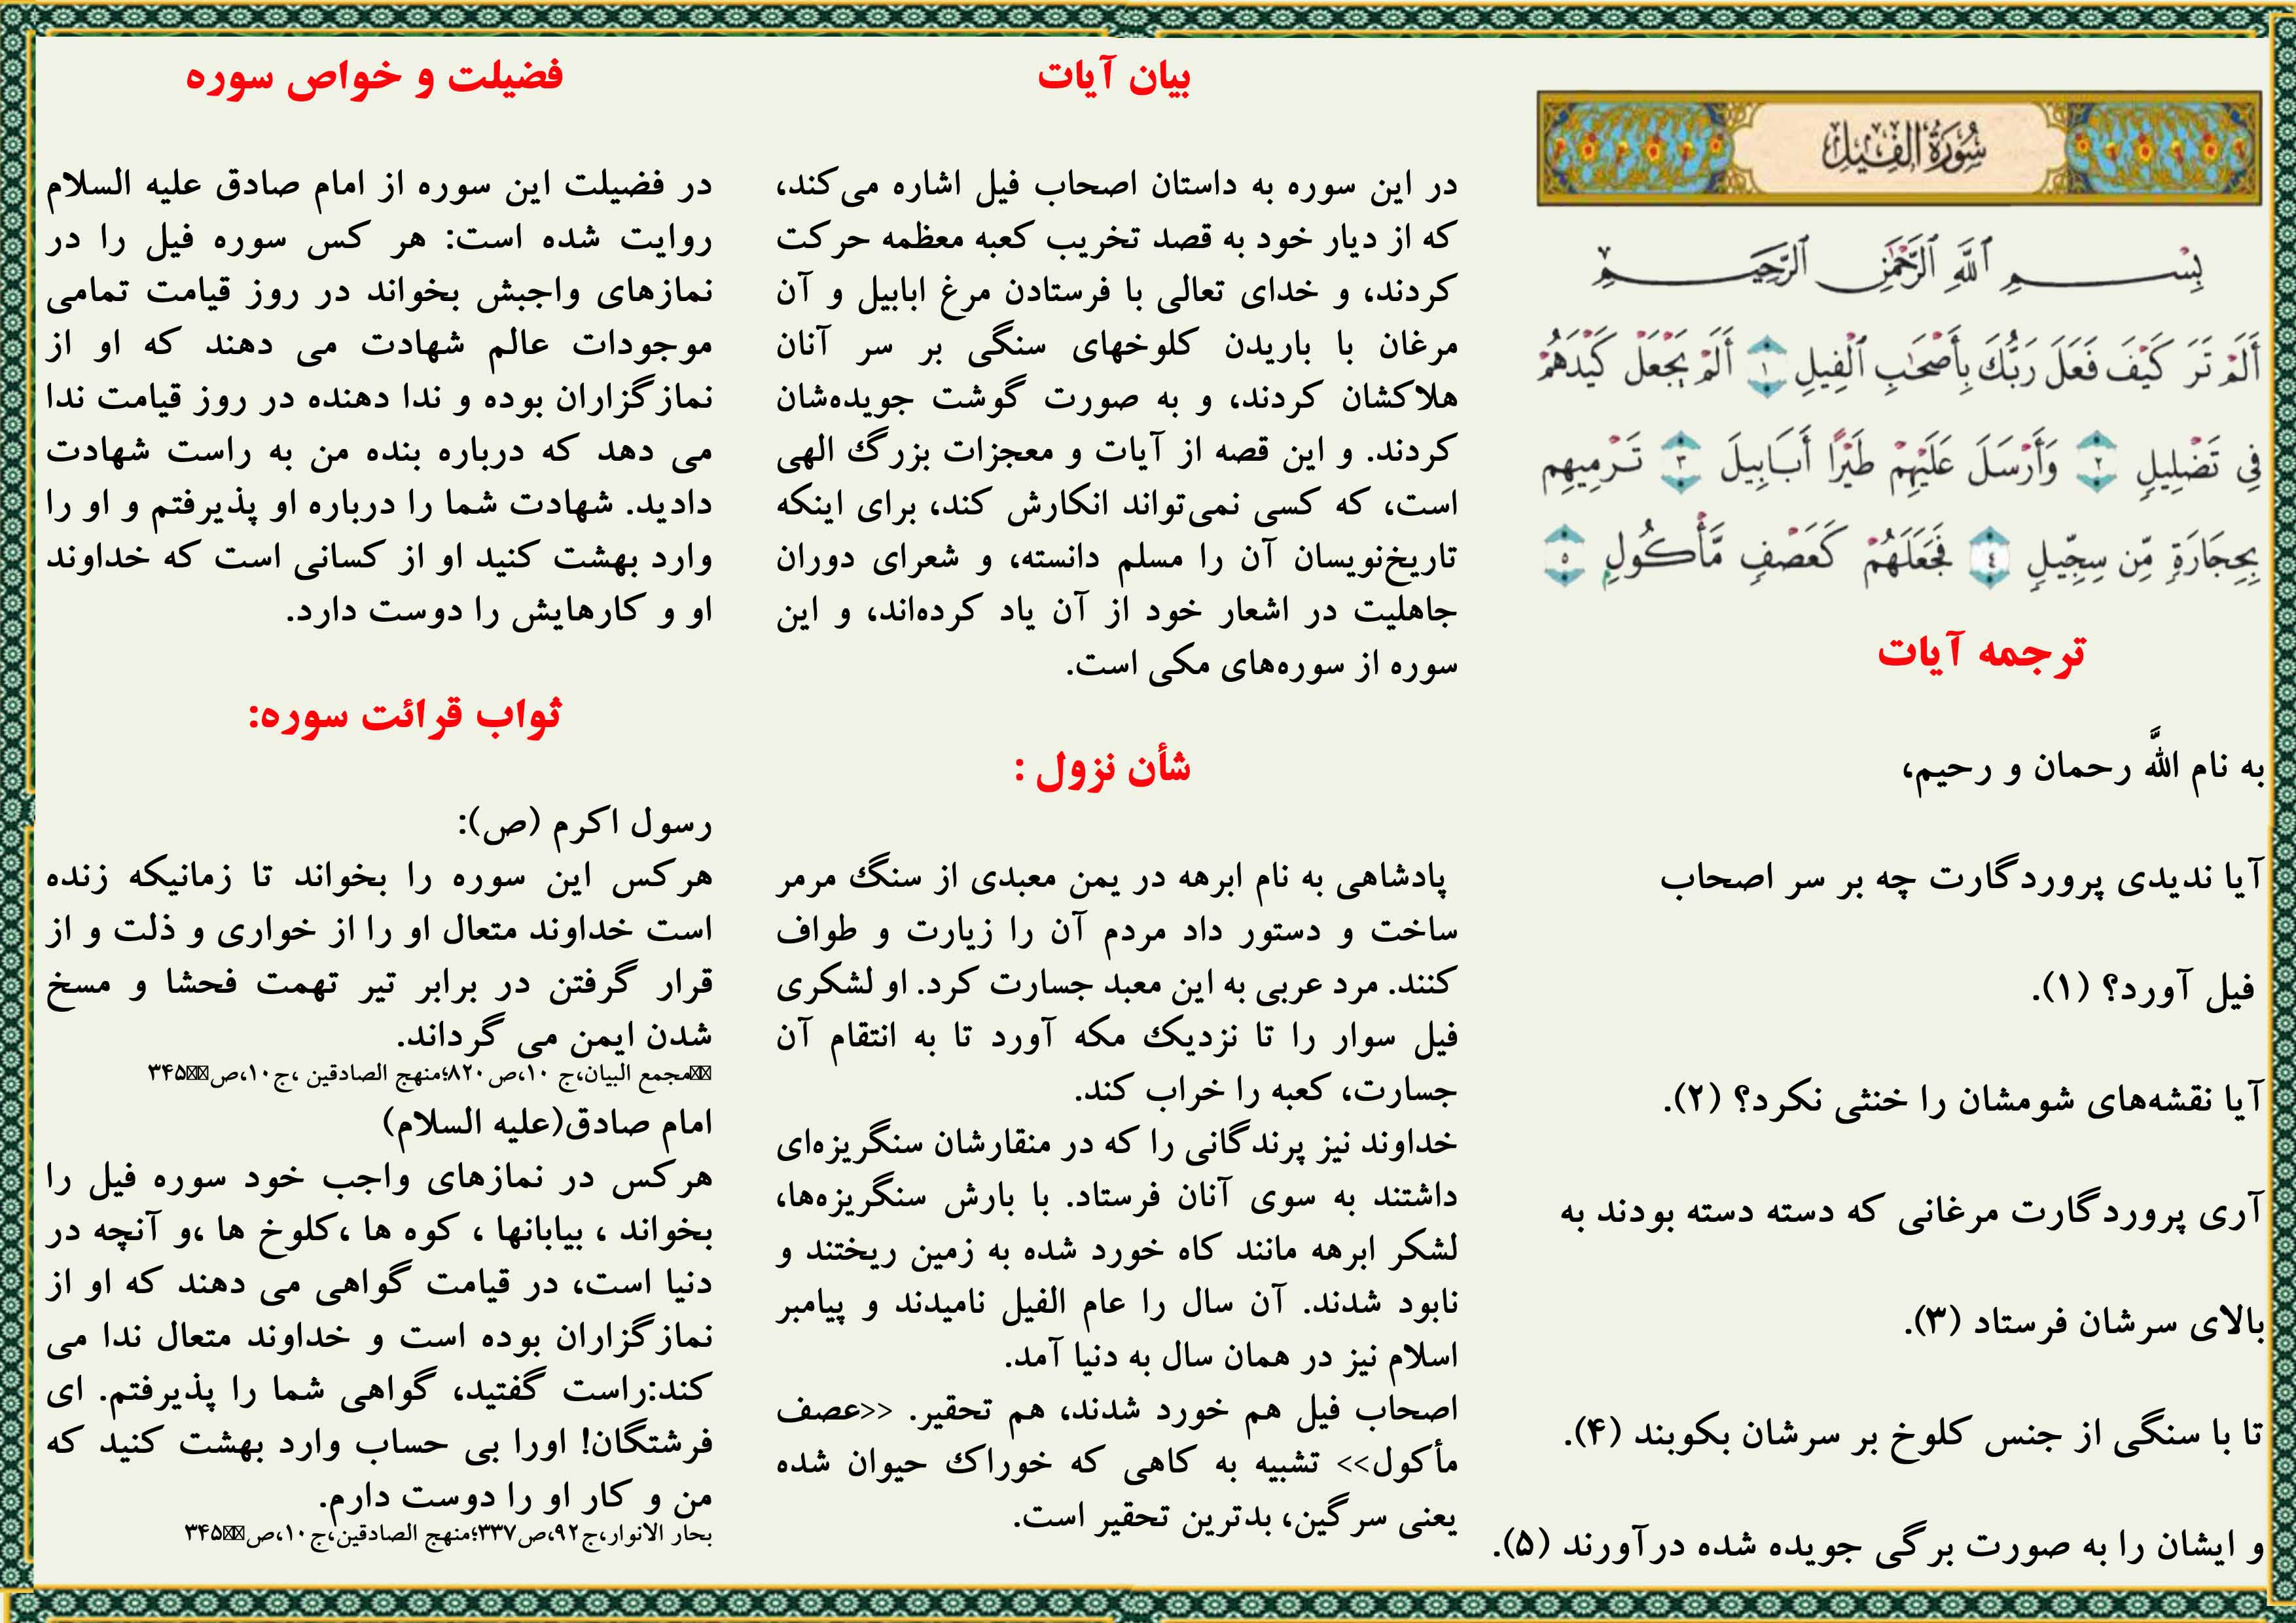 سُورَةُ الفِيلِ
بِسْمِ ٱللَّهِ ٱلرَّحْمَٰنِ ٱلرَّحِيمِ
أَلَمْ تَرَ كَيْفَ فَعَلَ رَبُّكَ بِأَصْحَٰبِ ٱلْفِيلِ ١ أَلَمْ يَجْعَلْ كَيْدَهُمْ
فِي تَضْلِيلٍ ٢ وَأَرْسَلَ عَلَيْهِمْ طَيْرًا أَبَابِيلَ ٣ تَرْمِيهِم
بِحِجَارَةٍ مِّن سِجِّيلٍ ٤ فَجَعَلَهُمْ كَعَصْفٍ مَّأْكُولٍ ٥
ترجمه آیات
به نام اللَّه رحمان و رحیم،
آیا ندیدی پروردگارت چه بر سر اصحاب
فیل آورد؟ (۱).
آیا نقشه‌های شومشان را خنثی نکرد؟ (۲).
آری پروردگارت مرغانی که دسته دسته بودند به
بالای سرشان فرستاد (۳).
تا با سنگی از جنس کلوخ بر سرشان بکوبند (۴).
و ایشان را به صورت برگی جویده شده درآورند (۵).
بیان آیات
در این سوره به داستان اصحاب فیل اشاره می‌کند،
که از دیار خود به قصد تخریب کعبه معظمه حرکت
کردند، و خدای تعالی با فرستادن مرغ ابابیل و آن
مرغان با باریدن کلوخهای سنگی بر سر آنان
هلاکشان کردند، و به صورت گوشت جویده‌شان
کردند. و این قصه از آیات و معجزات بزرگ الهی
است، که کسی نمی‌تواند انکارش کند، برای اینکه
تاریخ‌نویسان آن را مسلم دانسته، و شعرای دوران
جاهلیت در اشعار خود از آن یاد کرده‌اند، و این
سوره از سوره‌های مکی است.
شأن نزول :
پادشاهی به نام ابرهه در یمن معبدی از سنگ مرمر
ساخت و دستور داد مردم آن را زیارت و طواف
کنند. مرد عربی به این معبد جسارت کرد. او لشکری
فیل سوار را تا نزدیک مکه آورد تا به انتقام آن
جسارت، کعبه را خراب کند.
خداوند نیز پرندگانی را که در منقارشان سنگریزه‌ای
داشتند به سوی آنان فرستاد. با بارش سنگریزه‌ها،
لشکر ابرهه مانند کاه خورد شده به زمین ریختند و
نابود شدند. آن سال را عام الفیل نامیدند و پیامبر
اسلام نیز در همان سال به دنیا آمد.
اصحاب فیل هم خورد شدند، هم تحقیر. <<عصف
مأکول>> تشبیه به کاهی که خوراک حیوان شده
یعنی سرگین، بدترین تحقیر است.
فضیلت و خواص سوره
در فضیلت این سوره از امام صادق علیه السلام
روایت شده است: هر کس سوره فیل را در
نمازهای واجبش بخواند در روز قیامت تمامی
موجودات عالم شهادت می دهند که او از
نمازگزاران بوده و ندا دهنده در روز قیامت ندا
می دهد که درباره بنده من به راست شهادت
دادید. شهادت شما را درباره او پذیرفتم و او را
وارد بهشت کنید او از کسانی است که خداوند
او و کارهایش را دوست دارد.
ثواب قرائت سوره:
رسول اکرم (ص):
هرکس این سوره را بخواند تا زمانیکه زنده
است خداوند متعال او را از خواری و ذلت و از
قرار گرفتن در برابر تیر تهمت فحشا و مسخ
شدن ایمن می گرداند.
مجمع البیان،ج ۱۰،ص۸۲۰؛منهج الصادقین ،ج۱۰،ص۳۴۵
امام صادق(علیه السلام)
هرکس در نمازهای واجب خود سوره فیل را
بخواند ، بیابانها ، کوه ها ،کلوخ ها ،و آنچه در
دنیا است، در قیامت گواهی می دهند که او از
نمازگزاران بوده است و خداوند متعال ندا می
کند:راست گفتید، گواهی شما را پذیرفتم. ای
فرشتگان! اورا بی حساب وارد بهشت کنید که
من و کار او را دوست دارم.
بحار الانوار،ج۹۲،ص۳۳۷؛منهج الصادقین،ج۱۰،ص۳۴۵